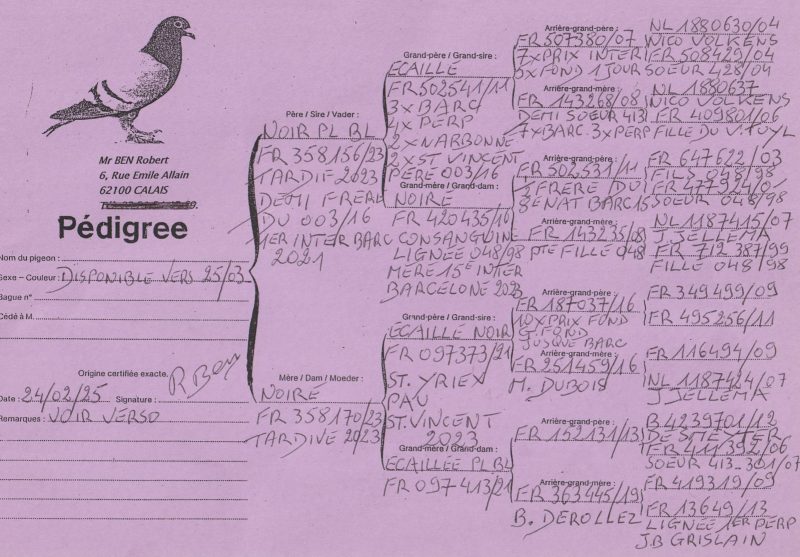 Mr BEN Robert
6, Rue Emile Allain
62100 CALAIS
Pédigree
Nom du pigeon :
Sexe – Couleur : DISPONIBLE VERS 25/03
Bague n°
Cédé à M.
Origine certifiée exacte.
Date : 24/02/25 Signature : R Ben
Remarques : VOIR VERSO
Père / Sire / Vader :
NOIR PL BL
FR 358156/23
TARDIF 2023
DEMI FRERE
DU 003/16
1ER INTER BARC
2021
Mère / Dam / Moeder :
NOIRE
FR 358170/23
TARDIVE 2023
Grand-père / Grand-sire :
ECAILLÉ
FR 502541/11
3X BARC
4X PERP
2X NARBONNE
2X ST VINCENT
PÈRE 003/16
Grand-mère / Grand-dam :
NOIRE
FR 420435/16
CONSANGUINE
LIGNÉE 048/98
MÈRE 15E INTER
BARCELONE 2023
Grand-père / Grand-sire :
ECAILLÉ NOIR
FR 097373/21
ST. YRIEX
PAU
ST. VINCENT
2023
Grand-mère / Grand-dam :
ECAILLÉE PL BL
FR 097413/21
Arrière-grand-père :
FR 507380/07
7X PRIX INTER
5X FOND 1 JOUR
Arrière-grand-mère :
FR 143268/08
DEMI SOEUR 413
7X BARC. 3X PERP
Arrière-grand-père :
FR 502531/11
FRERE DU
BENAT BARC 15
Arrière-grand-mère :
FR 143235/08
PTE FILLE 048
Arrière-grand-père :
FR 187037/16
10X PRIX FOND
G. FOND
JUSQUE BARC
Arrière-grand-mère :
FR 251459/16
M. DUBOIS
Arrière-grand-père :
FR 152131/13
Arrière-grand-mère :
FR 363445/19
B. DEROLLEZ
NL 1880630/04
NICO VOLKENS
FR 508429/04
SOEUR 428/04
NL 1880637
NICO VOLKENS
FR 409801/06
FILLE DU V. TUYL
FR 647622/03
FILS 048/98
FR 477924/01
SOEUR 048/98
NL 1187415/07
J. JELLEMA
FR 712387/99
FILLE 048/98
FR 349499/09
FR 495256/11
FR 116494/09
NL 1187424/07
J JELLEMA
B 4239701/12
DE SMEYTER
FR 411392/06
SOEUR 413-301/07
FR 419319/09
FR 13649/13
LIGNÉE 1ER PERP
J.B GRISLAIN